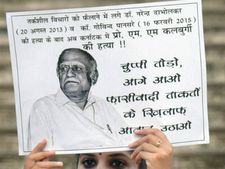 तर्कशील विचारों को फैलाने में लगे डा. नरेन्द्र दाभोलकर
(20 अगस्त 2013) व का. गोविन्द पानसरे (16 फरवरी 2015)
की हत्या के बाद अब कर्नाटक में प्रो. एम. एम कलबुर्गी
की हत्या !!
चुप्पी तोड़ो,
आगे आओ
फ़ासीवादी ताकतों
के ख़िलाफ़
आवाज़ उठाओ